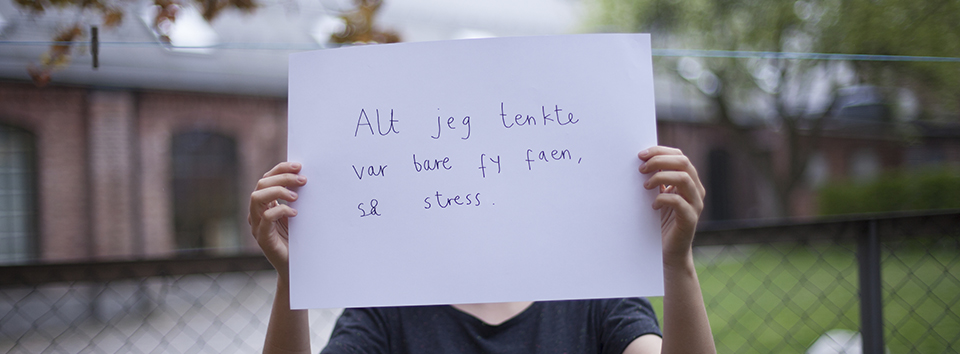 Alt jeg tenkte
var bare fy faen,
så stress.